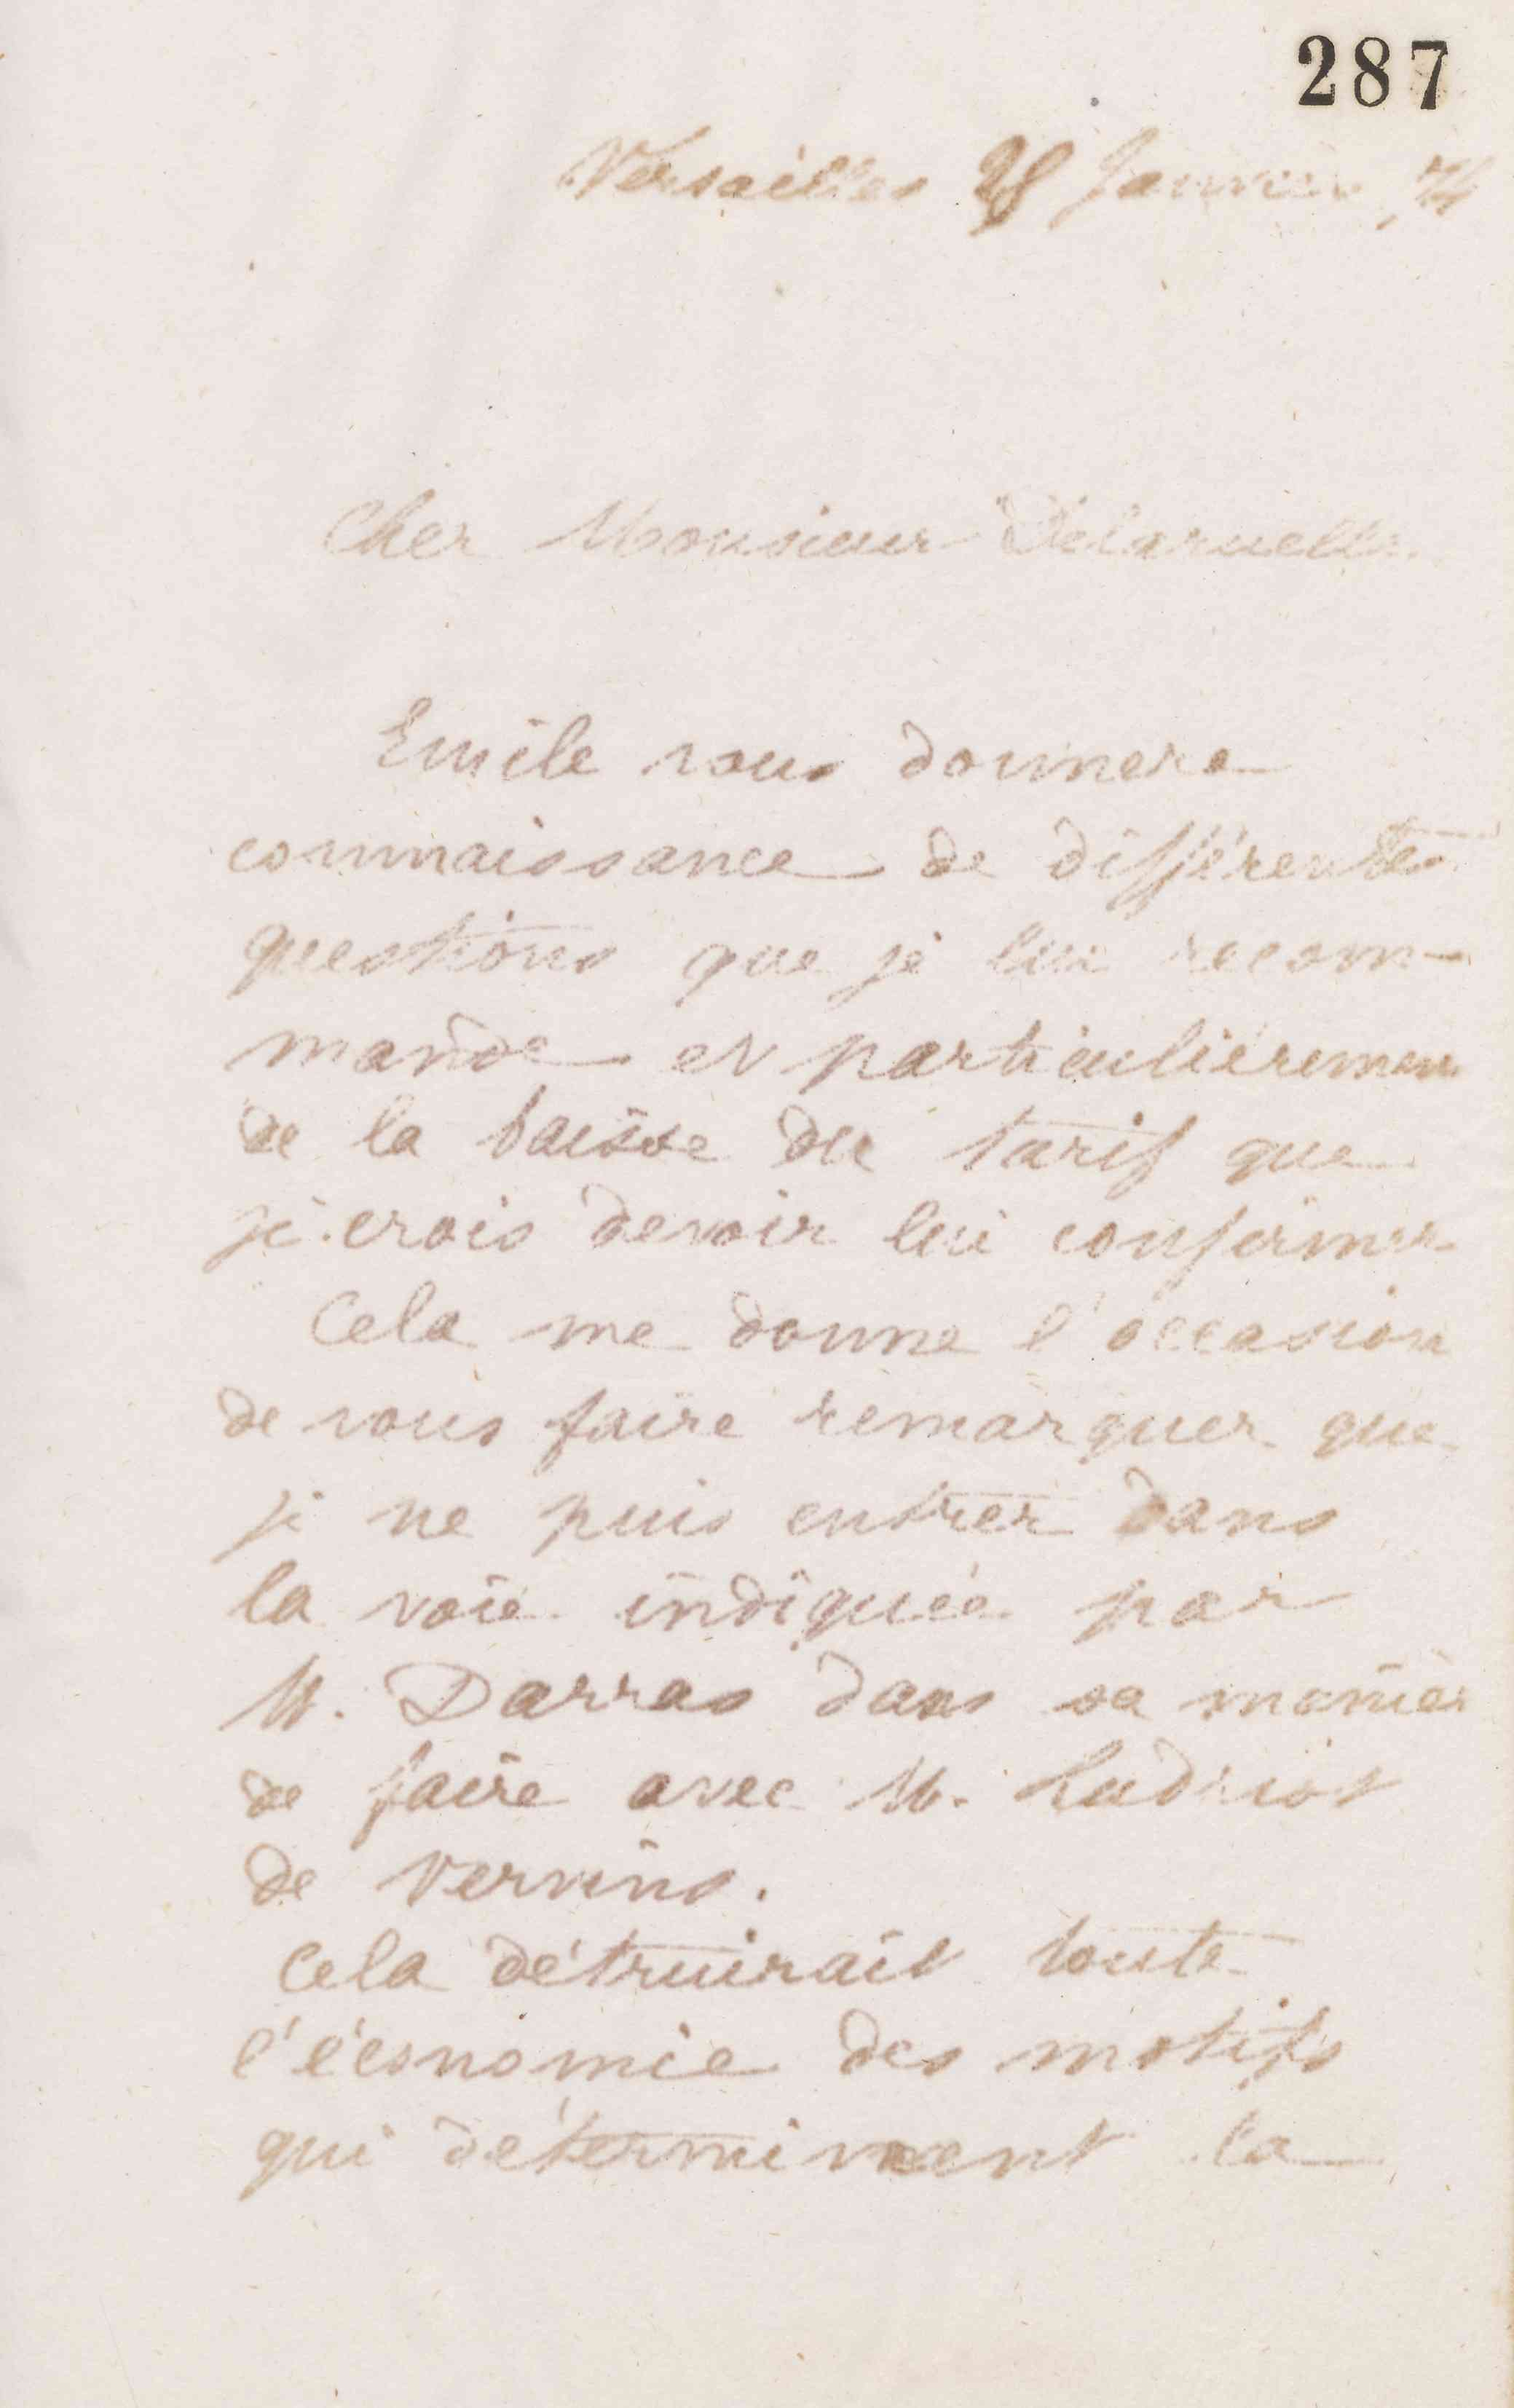 287
Versailles 28 Janvier, 74
Cher Monsieur Delaruelle
Emile vous donnera
connaissance de différentes
questions que je lui recom-
mande et particulièrement
de la baisse du tarif que
je crois devoir lui confirmer
Cela me donne l'occasion
de vous faire remarquer que
je ne puis entrer dans
la voie indiquée par
M. Darras dans sa manièr
de faire avec M.
de Vervins.
Cela détruirait toute
l'économie des motifs
qui déterminent la